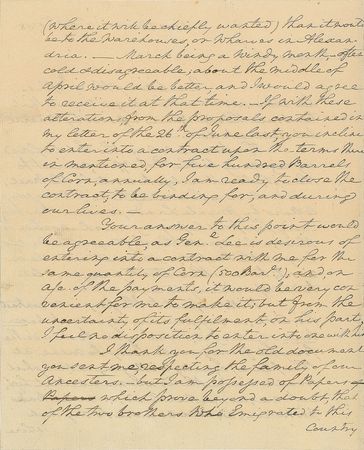 (where it will be chiefly wanted) than it would
be to the Warehouses, or Wharves in Alexan-
dria. — March being a Windy month, often
cold & disagreeable, about the middle of
April would be better, and I would agree
to receive it at that time. — If with these
alteration, from the proposals contained in
my letter of the 26th of June last, you incline
to enter into a contract upon the terms there
in mentioned, for five hundred Barrels
of Corn, annually, I am ready to close the
contract, to be binding for, and during
our lives. —
Your answer to this point would
be agreeable, as Genl Lee is desirous of
entering into a contract with me for the
same quantity of Corn (500 Barls), and on
acct of the payments, it would be very con-
venient for me to make it; but from the
uncertainty of its fulfilment, on his part,
I feel no disposition to enter into one with him
I thank you for the old document
you sent me, respecting the family of our
Ancesters. — but I am possessed of Papers
Papers which prove beyond a doubt, that
of the two brothers who Emigrated to this
Country